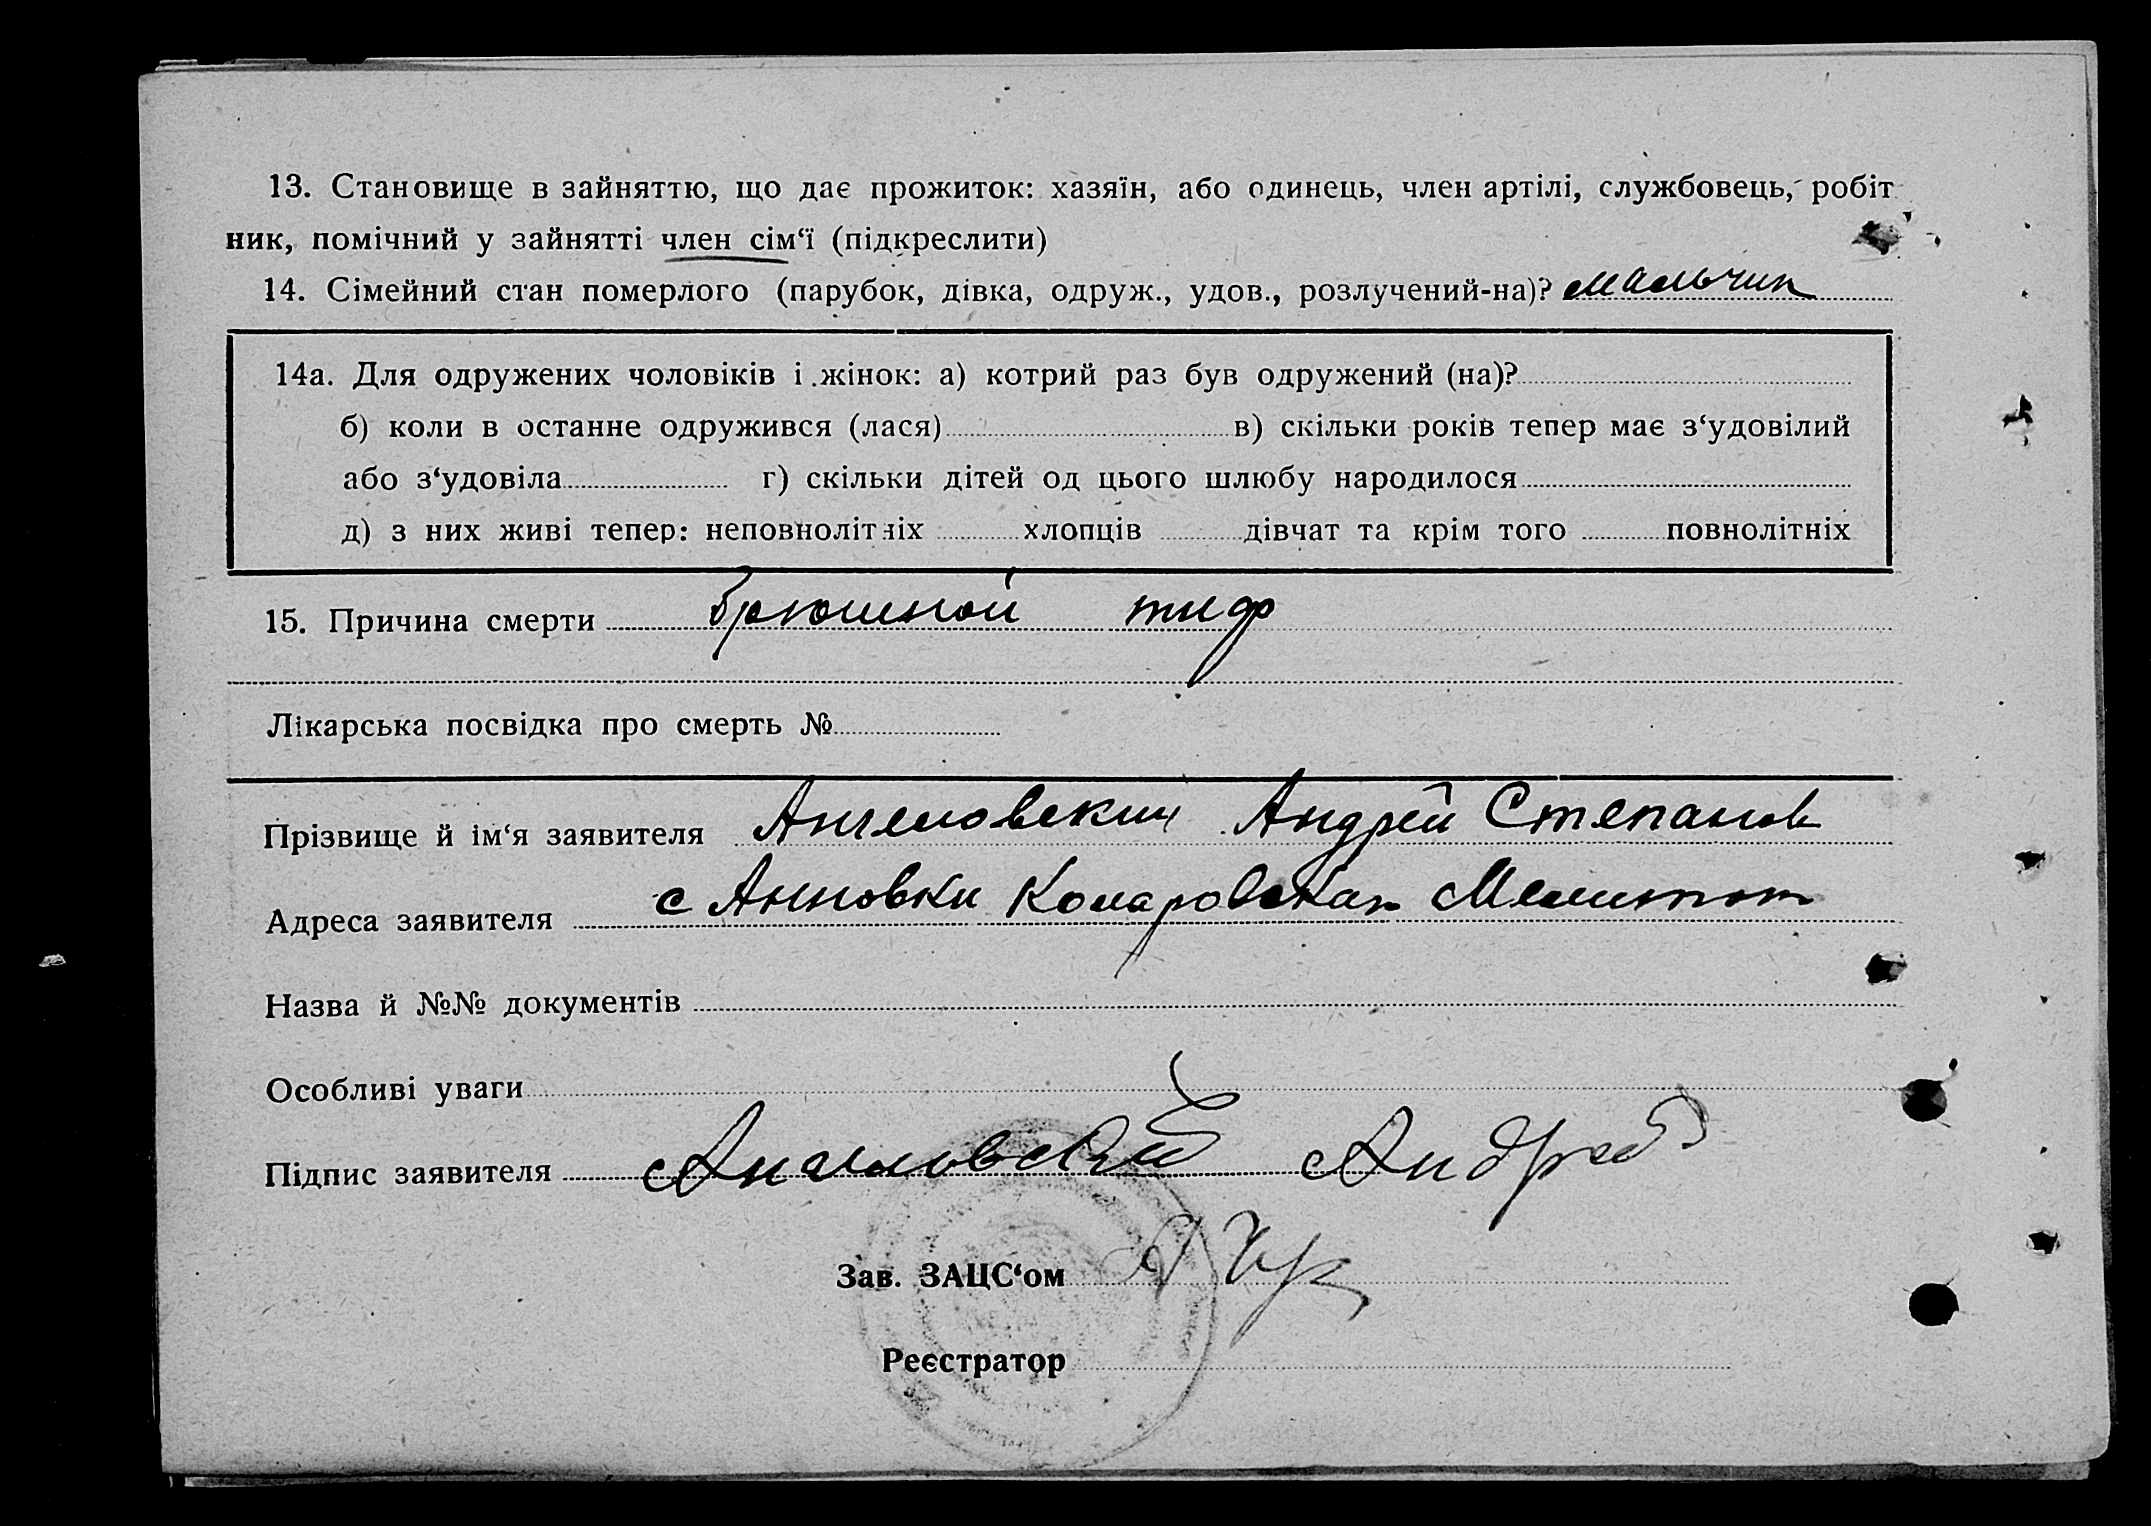 13. Становище в зайняттю, що дає прожиток: хазяїн, або одинець, член артілі, службовець, робіт
ник, помічний у зайнятті член сім‘ї (підкреслити)
14. Сімейний стан померлого (парубок, дівка, одруж., удов., розлучений-на)? мальчик
14а. Для одружених чоловіків і жінок: а) котрий раз був одружений (на)?
б) коли в останне одружився (лася) в) скільки років тепер має з‘удовілий
або з‘удовіла г) скільки дітей од цього шлюбу народилося
д) з них живі тепер: неповнолітніх хлопців дівчат та крім того повнолітніх
15. Причина смерти Брюшной тиф
Лікарська посвідка про смерть №
Прізвище й ім‘я заявителя Ангеловский Андрей Степанов
Адреса заявителя с Анновки Комаровская Мелитоп
Назва й №№ документів
Особливі уваги
Підпис заявителя Ангеловский Андрей
Зав. ЗАЦС‘ом
Реєстратор